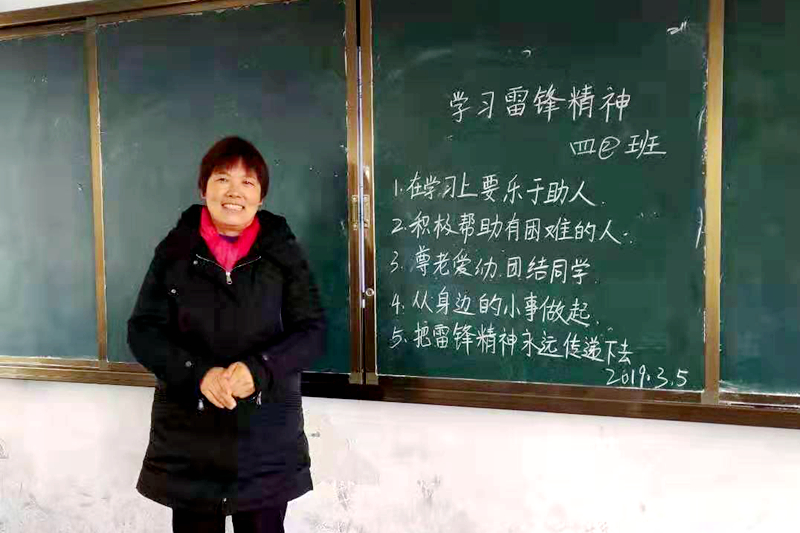 学习雷锋精神
四②班
1.在学习上要乐于助人.
2.积极帮助有困难的人.
3.尊老爱幼.团结同学.
4.从身边的小事做起.
5.把雷锋精神永远传递下去
2019.3.5